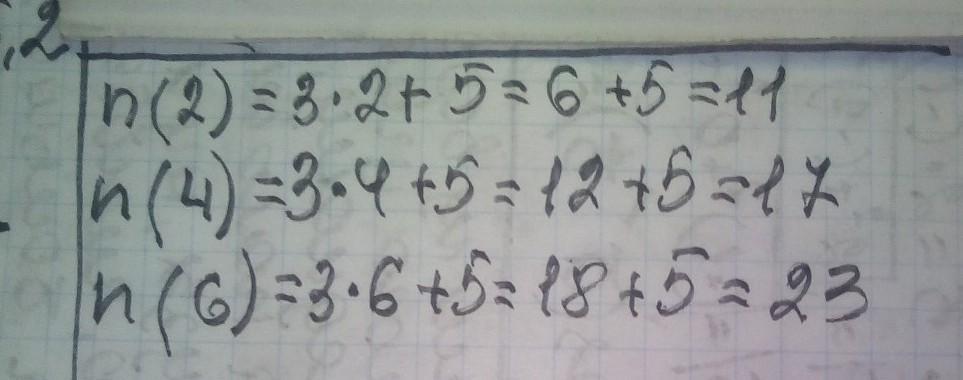 ,2
n(2)=3·2+5=6+5=11
n(4)=3·4+5=12+5=17
n(6)=3·6+5=18+5=23